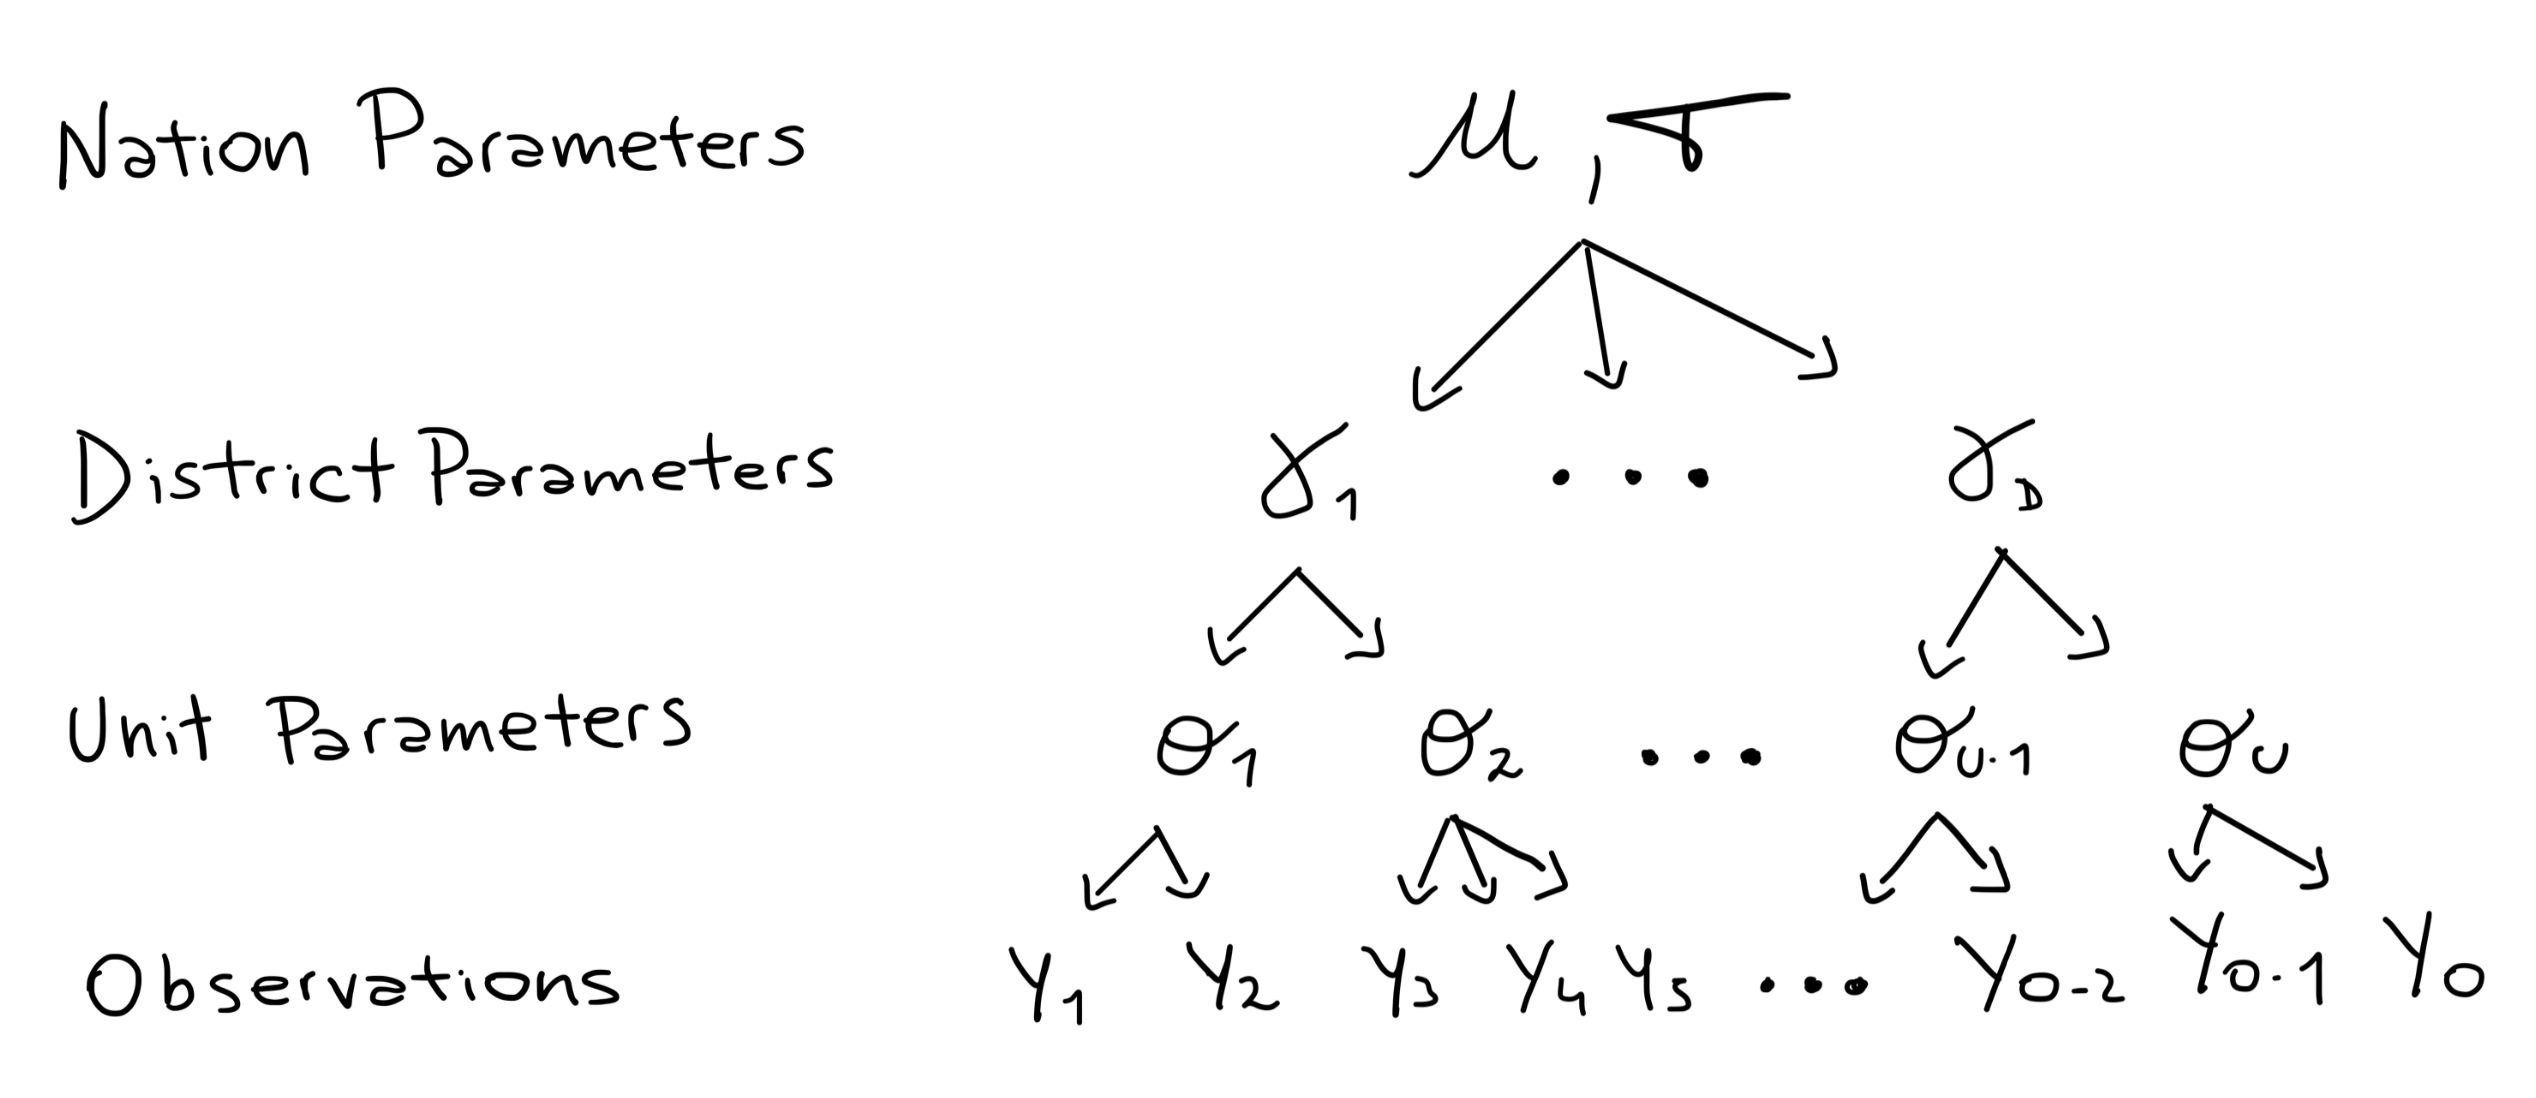 Nation Parameters μ, σ
District Parameters γ1 ... γD
Unit Parameters θ1 θ2 ... θU-1 θU
Observations Y1 Y2 Y3 Y4 Y5 ... YO-2 YO-1 YO